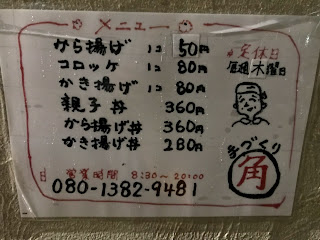 メニュー
から揚げ 1コ 50円
コロッケ 1コ 80円
かき揚げ 1コ 80円
親子丼 360円
から揚げ丼 360円
かき揚げ丼 280円
営業時間 8:30~20:00
080-1382-9481
定休日
毎週木曜日
手づくり
角